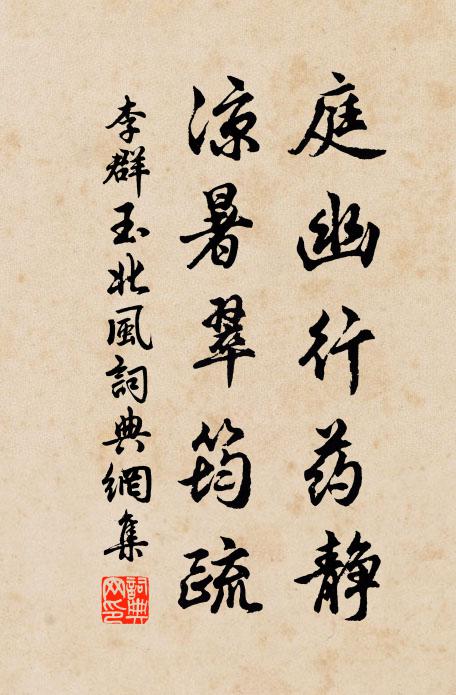 庭幽行药静
涼暑翠筠疏
李群玉北風詞典網集
詞典网印